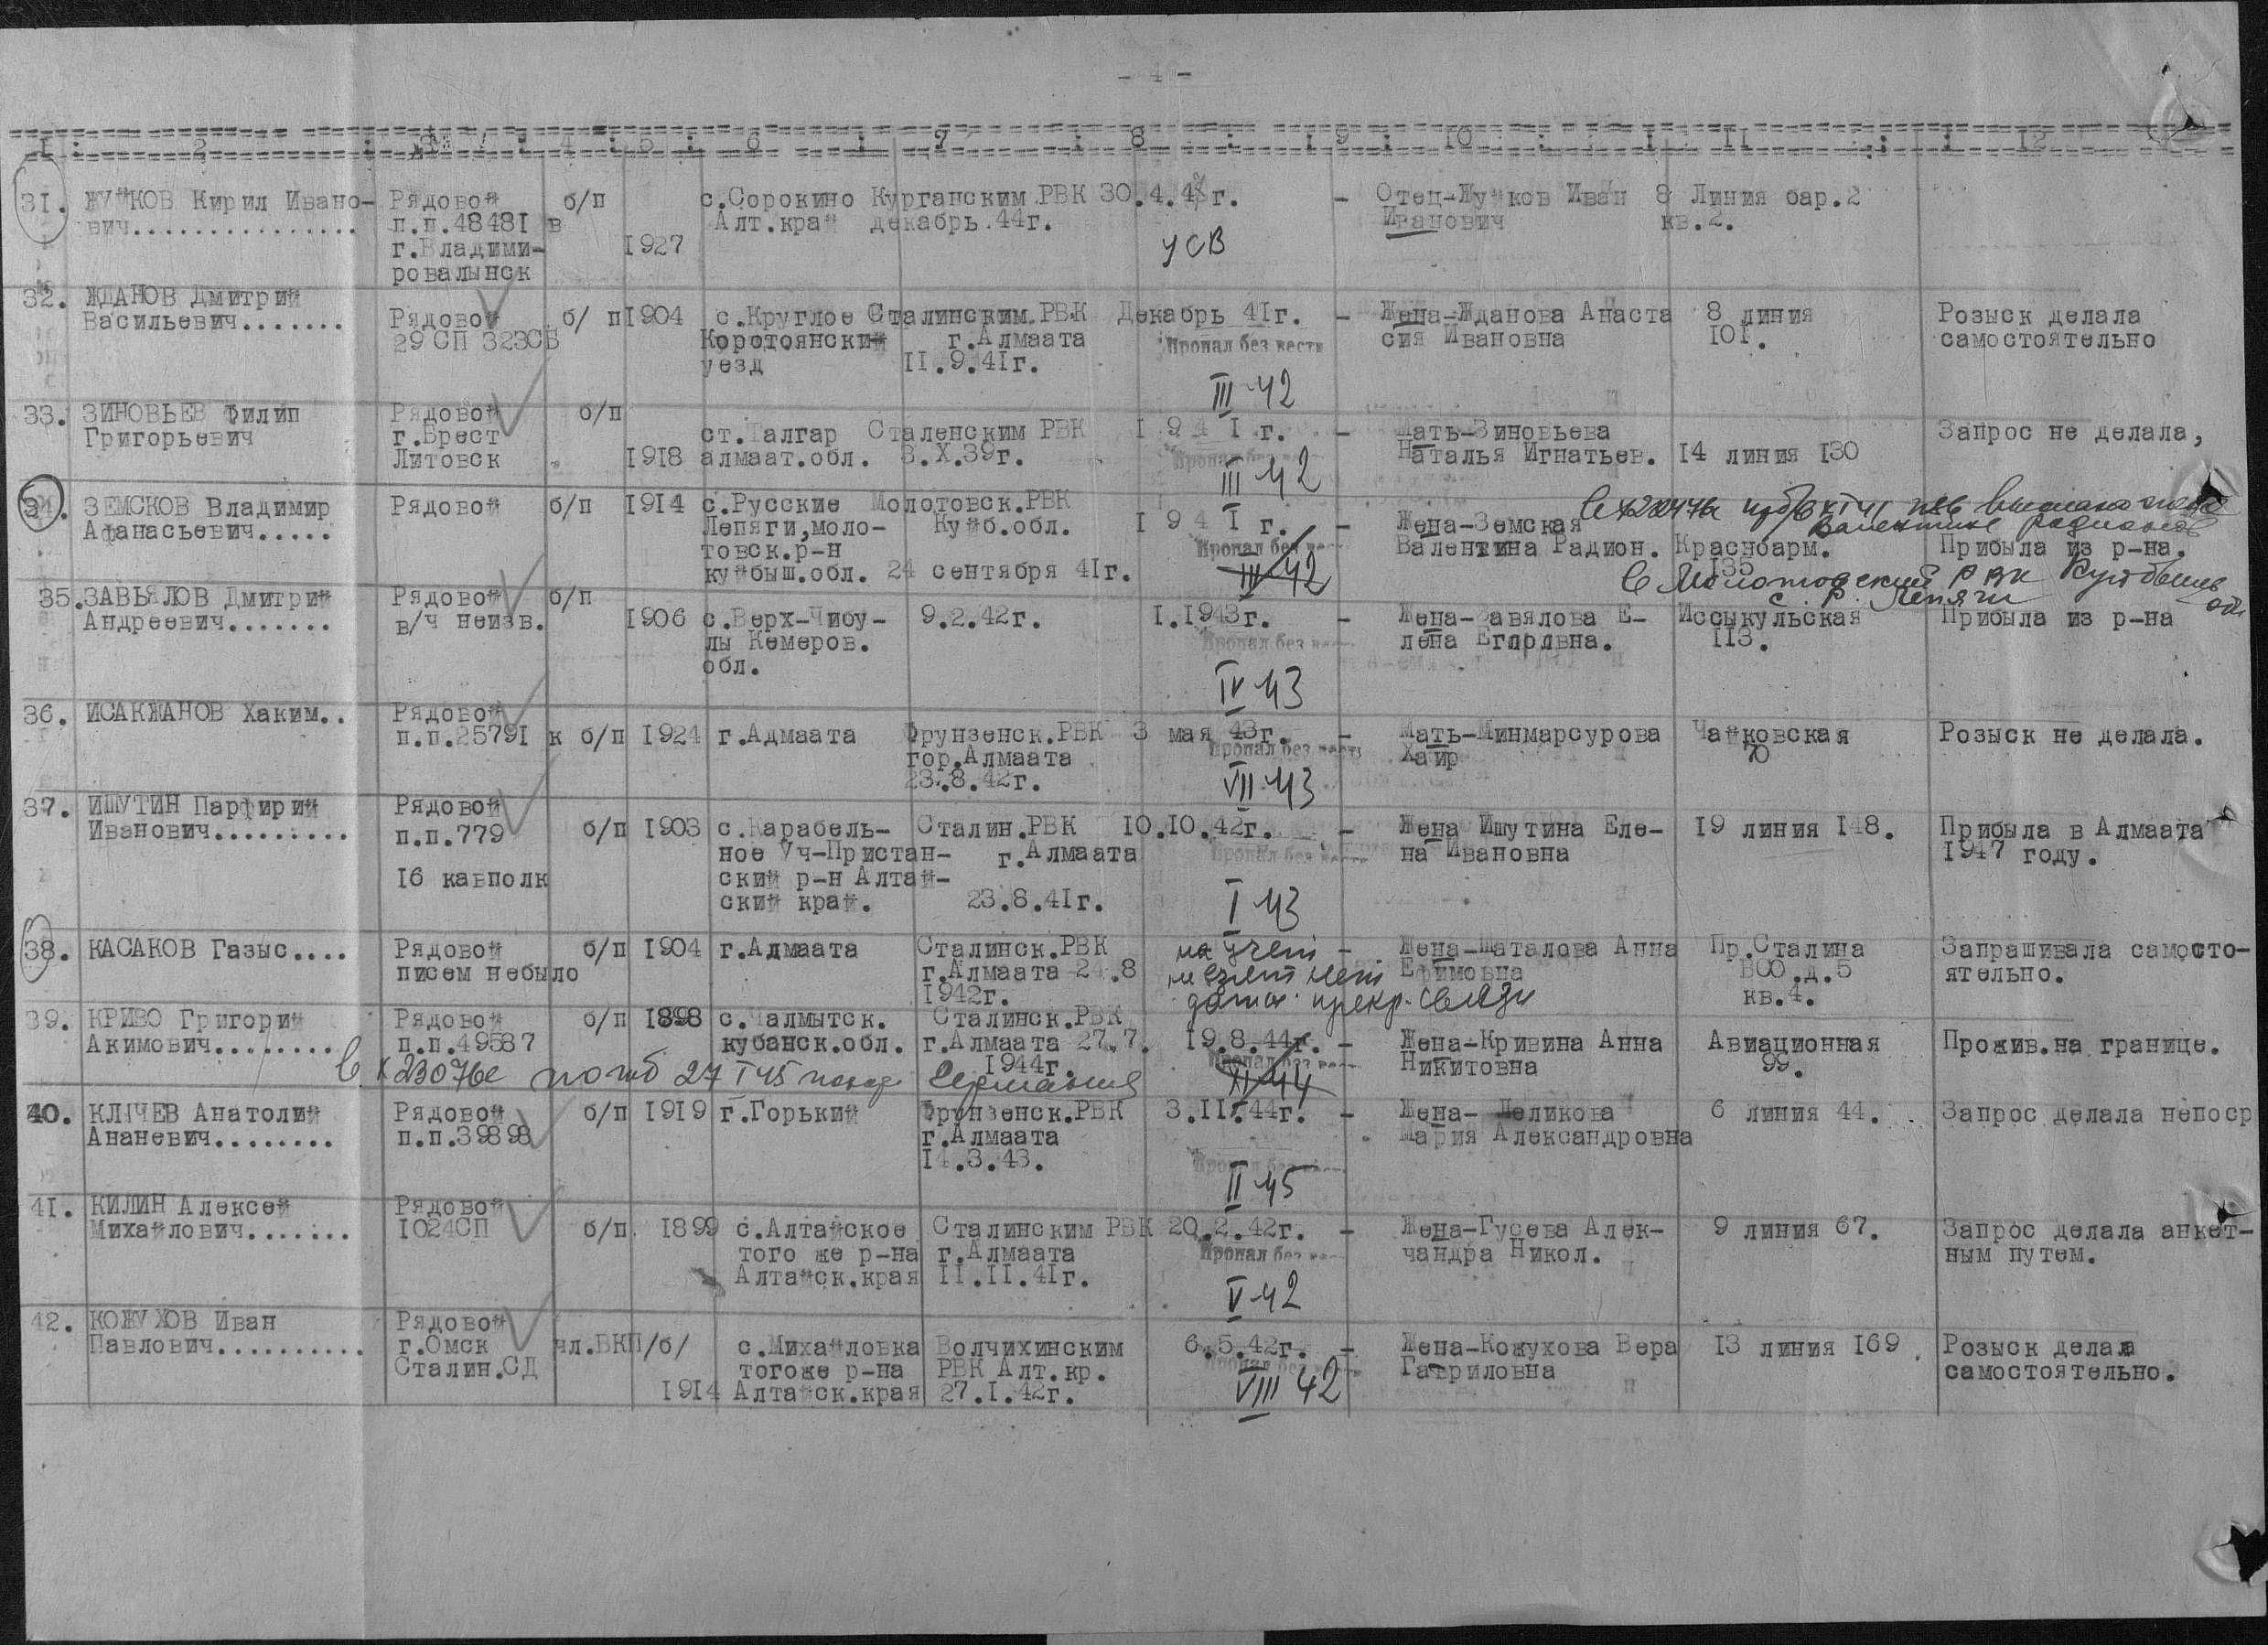 - 4 -
1 : 2 : 3 : 4 : 5 : 6 : 7 : 8 : 9 : 10 : 11 : 12
31. ЖУЙКОВ Кирил Ивано- Рядовой б/п с.Сорокино Курганским РВК 30.4.4 г. - Отец-Жуйков Иван 8 Линия бар.2
вич............... п.п.48481 в Алт.край декабрь.44г. Иванович кв.2.
г.Владими- 1927 УСВ
ровалынск
32. ЖДАНОВ Дмитрий
Васильевич....... Рядовой б/ п 1904 с.Круглое Сталинским.РВК Декабрь 41г. - Жена-Жданова Анаста 8 линия Розыск делала
29 СП 323СБ Коротоянский г.Алмаата Пропал без вести сия Ивановна 101. самостоятельно
уезд 11.9.41г.
III 42
33. ЗИНОВЬЕВ Филип Рядовой б/п
Григорьевич г.Брест ст.Талгар Сталенским РВК 1 9 4 1 г. - Мать-Зиновьева Запрос не делала,
Литовск 1918 алмаат.обл. 3.X.39г. Пропал без вести Наталья Игнатьев. 14 линия 130
III 42
34. ЗЕМСКОВ Владимир Рядовой б/п 1914 с.Русские Молотовск.РВК
Афанасьевич..... Лепяги,моло- Куйб.обл. 1 9 4 1 г. - Жена-Земская Валентине
товск.р-н Пропал без Валентина Радион. Красноарм. Прибыла из р-на.
куйбыш.обл. 24 сентября 41г. 42 135
В Молотовский РВК
с. Р. Лепяги
35. ЗАВЬЯЛОВ Дмитрий Рядовой б/п
Андреевич....... в/ч неизв. 1906 с.Верх-Чибу- 9.2.42г. 1.1943г. - Жена-Завялова Е- Иссыкульская Прибыла из р-на
лы Кемеров. Пропал без лена Егоровна. 113.
обл.
IV 43
36. ИСАКЖАНОВ Хаким.. Рядовой
п.п.25791 к б/п 1924 г.Адмаата Фрунзенск.РВК 3 мая 43г. - Мать-Минмарсурова Чайковская Розыск не делала.
гор.Алмаата Пропал без вести Хаир 70
23.8.42г. VII 43
37. ИШУТИН Парфирий Рядовой
Иванович......... п.п.779 б/п 1903 с.Карабель- Сталин.РВК 10.10.42г. - Жена Ишутина Еле- 19 линия 148. Прибыла в Алмаата
ное Уч-Пристан- г.Алмаата Пропал без на Ивановна 1947 году.
16 кавполк ский р-н Алтай-
ский край. 23.8.41г. I 43
38. КАСАКОВ Газыс.... Рядовой б/п 1904 г.Адмаата Сталинск.РВК на учет - Жена-Шаталова Анна Пр.Сталина Запрашивала самосто-
писем небыло г.Алмаата 24.8 нет Ефимовна ВОО.д.5 ятельно.
1942г. прекр. связи кв.4.
39. КРИВО Григорий Рядовой б/п 1898 с.Чалмытск. Сталинск.РВК
Акимович........ п.п.49587 кубанск.обл. г.Алмаата 27.7. 19.8.44г. - Жена-Кривина Анна Авиационная Прожив.на границе.
1944г. Пропал без Никитовна 99.
В х 23076с погиб 27 I 45 Германия
40. КЛЮЧЕВ Анатолий Рядовой б/п 1919 г.Горький Фрунзенск.РВК 3.11.44г. - Жена- Пеликова 6 линия 44. Запрос делала непоср
Ананевич........ п.п.39898 г.Алмаата Мария Александровна
14.3.43. Пропал без
II 45
41. КИЛИН Алексей Рядовой
Михайлович....... 1024СП б/п 1899 с.Алтайское Сталинским РВК 20.2.42г. - Жена-Гусева Алек- 9 линия 67. Запрос делала анкет-
того же р-на г.Алмаата Пропал без чандра Никол. ным путем.
Алтайск.края 11.11.41г.
V 42
42. КОЖУХОВ Иван Рядовой
Павлович.......... г.Омск чл.ВКП/б/ с.Михайловка Волчихинским 6.5.42г. - Жена-Кожухова Вера 13 линия 169 Розыск делала
Сталин.СД тогоже р-на РВК Алт.кр. Пропал без Гавриловна самостоятельно.
1914 Алтайск.края 27.1.42г. VIII 42